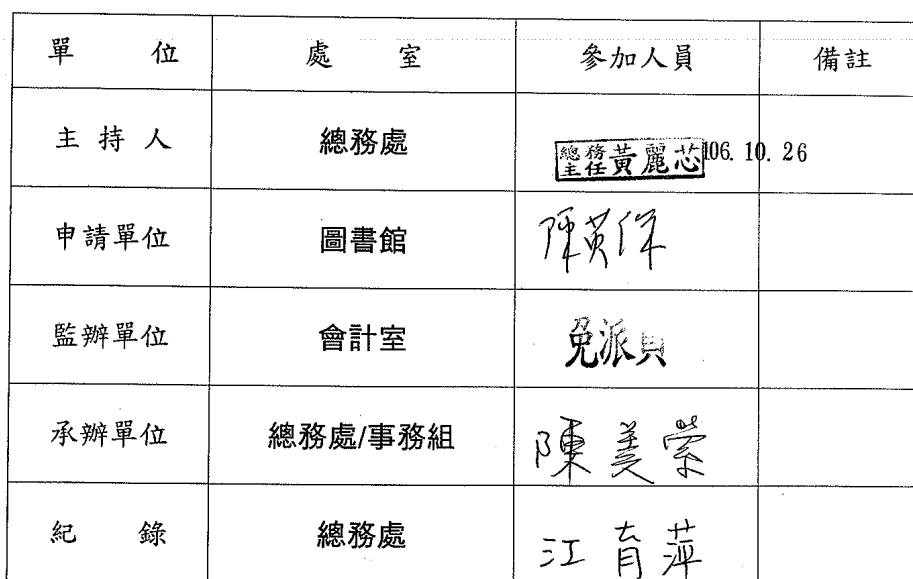 單 位 處 室 參加人員 備註
主 持 人 總務處 總務主任 黃麗芯 106. 10. 26
申請單位 圖書館 陳黃
監辦單位 會計室 免派員
承辦單位 總務處/事務組 陳美縈
紀 錄 總務處 江育萍